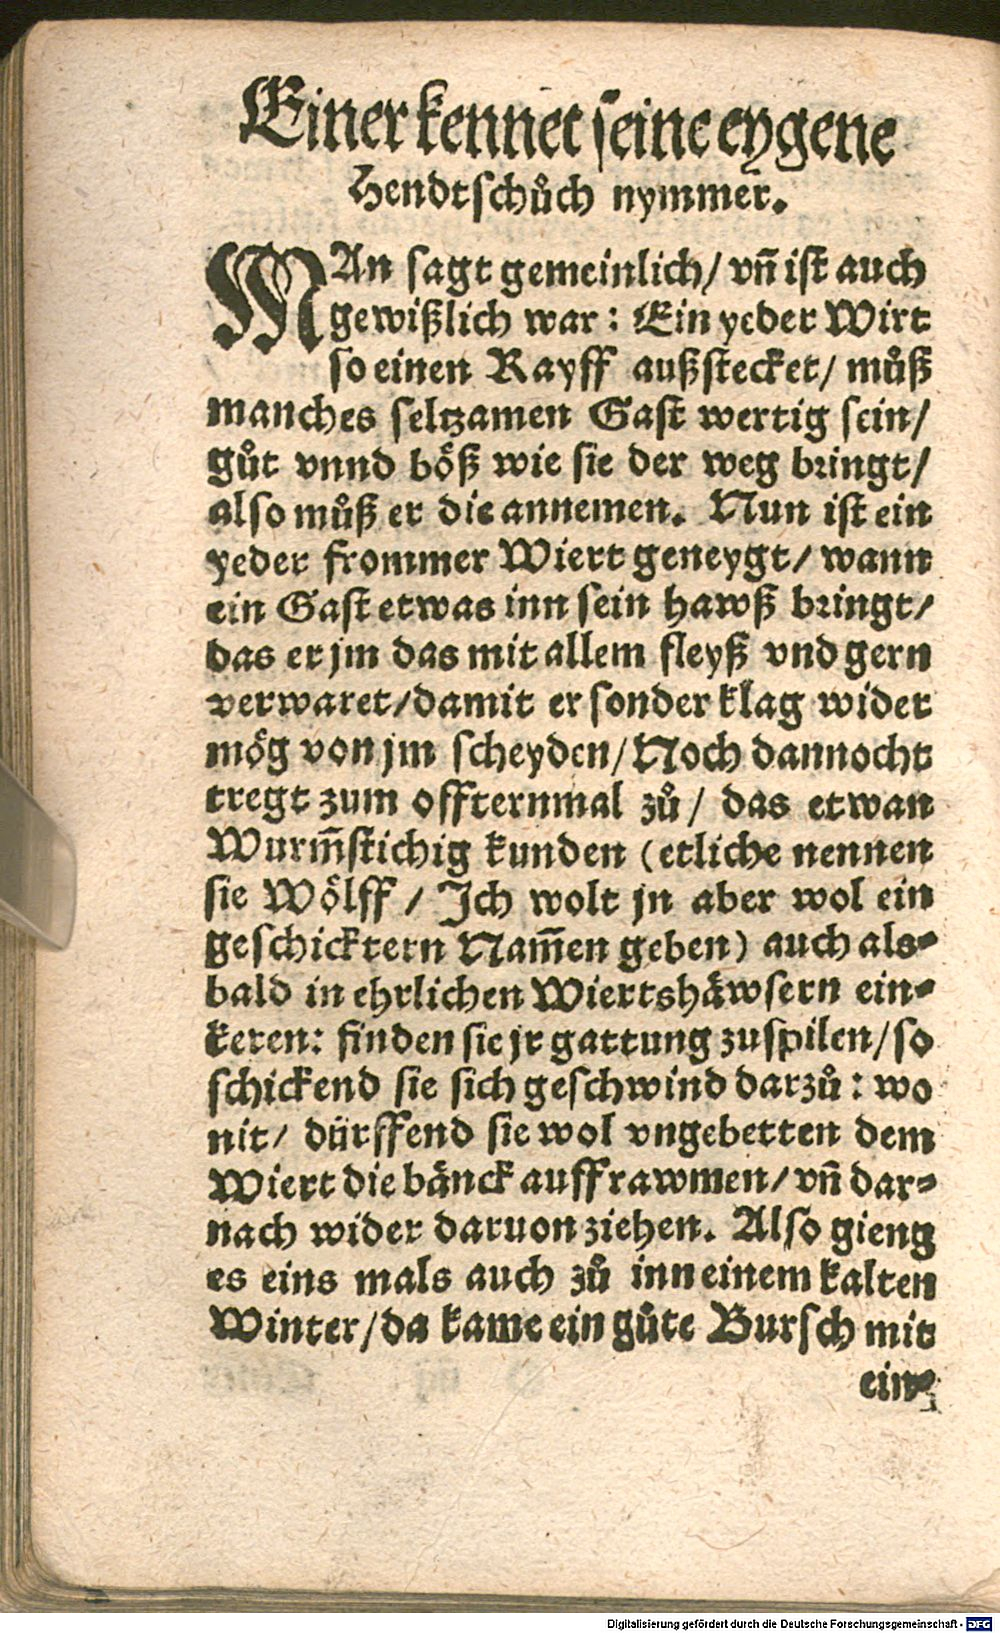 Einer kennet seine eygene
Hendtschůch nymmer.
MAn sagt gemeinlich/ vñ ist auch
gewißlich war: Ein yeder Wirt
so einen Rayff außstecket/ můß
manches seltzamen Gast wertig sein/
gůt vnnd böß wie sie der weg bringt/
also můß er die annemen. Nun ist ein
yeder frommer Wiert geneygt/ wann
ein Gast etwas inn sein hawß bringt/
das er jm das mit allem fleyß vnd gern
verwaret/ damit er sonder klag wider
mög von jm scheyden/ Noch dannocht
tregt zum offternmal zů/ das etwan
Wurm̃stichig kunden (etliche nennen
sie Wölff / Ich wolt jn aber wol ein
geschicktern Nam̃en geben) auch als-
bald in ehrlichen Wiertshäwsern ein-
keren: finden sie jr gattung zuspilen/ so
schickend sie sich geschwind darzů: wo
nit/ dürffend sie wol vngebetten dem
Wiert die bänck auffrawmen/ vñ dar-
nach wider daruon ziehen. Also gieng
es eins mals auch zů inn einem kalten
Winter/ da kame ein gůte Bursch mit
ein-
Digitalisierung gefördert durch die Deutsche Forschungsgemeinschaft - DFG